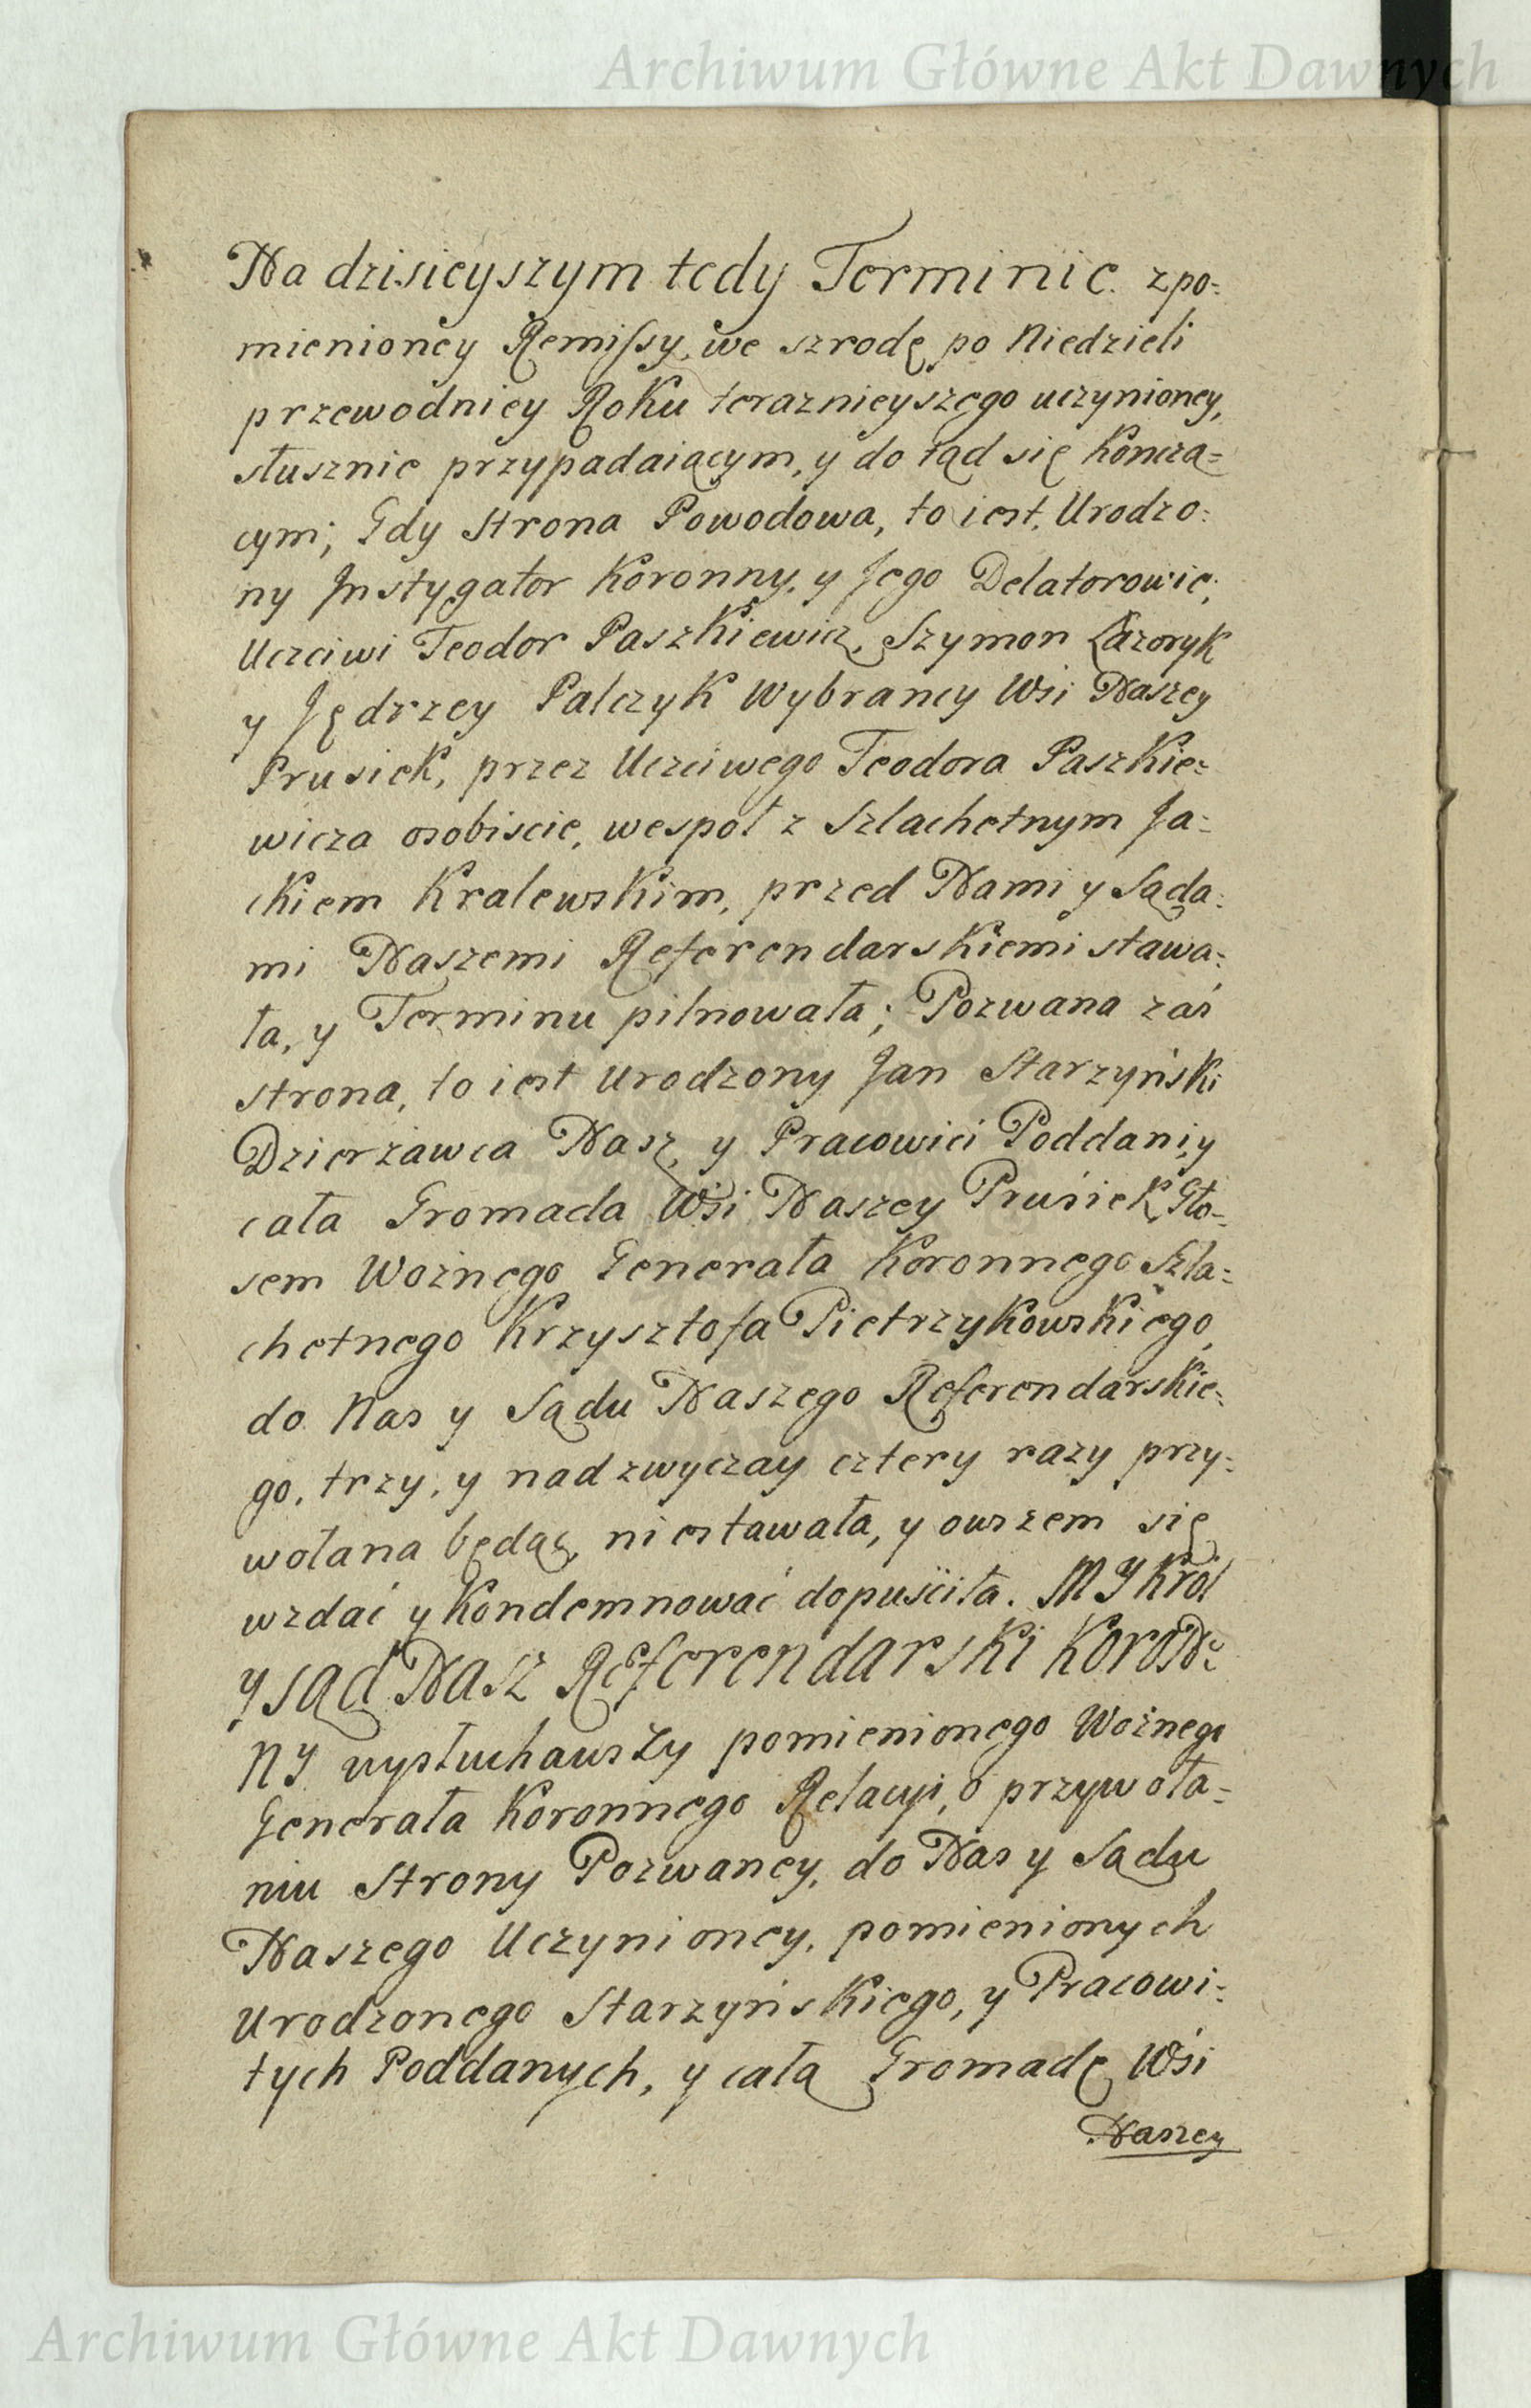 Archiwum Główne Akt Dawnych
Na dzisieyszym tedy Terminie zpo=
mienioney Remissy, we szrodę po Niedzieli
przewodniey Roku teraznieyszego uczynioney,
słusznie przypadaiącym, y do tąd się Koncza=
cym; Gdy Strona Powodowa, to iest, Urodzo=
ny Instygator Koronny, y Jego Delatorowie,
Uczciwi Teodor Paszkiewicz, Szymon Łazoryk
y Jędrzey Palczyk Wybrancy Wsi Naszey
Prusiek, przez Uczciwego Teodora Paszkie=
wicza osobiscie, wespoł z Szlachetnym Ja=
ckiem Kralewskim, przed Nami y Sąda=
mi Naszemi Referendarskiemi stawa=
ła, y Terminu pilnowała; Pozwana zaś
strona, to iest Urodzony Jan Starzyński
Dzierżawca Nasz, y Pracowici Poddani, y
cała Gromada Wsi Naszey Prusiek, Gło=
sem Woznego Generała Koronnego Szla=
chetnego Krzysztofa Pietrzykowskiego,
do Nas y Sądu Naszego Referendarskie=
go, trzy, y nad zwyczay cztery razy przy=
wołana będąc, niestawała, y owszem się
wzdać y Kondemnować dopuściła. MY Król
y sąd Nasz Referendarski KoroN=
NY wysłuchawszy pomienionego Woźnego
Generała Koronnego Relacyi, o przywoła=
niu Strony Pozwaney, do Nas y Sądu
Naszego Uczynioney, pomienionych
Urodzonego Starzyńskiego, y Pracowi=
tych Poddanych, y całą Gromadę Wsi
Naszey
Archiwum Główne Akt Dawnych